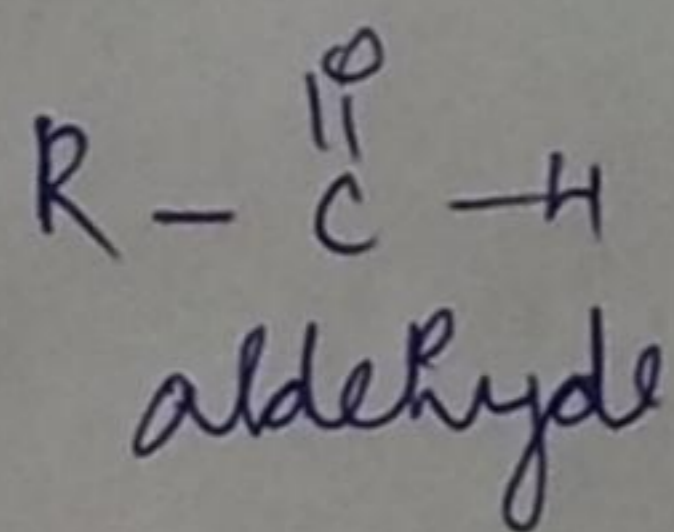 O
||
R - C - H
aldehyde